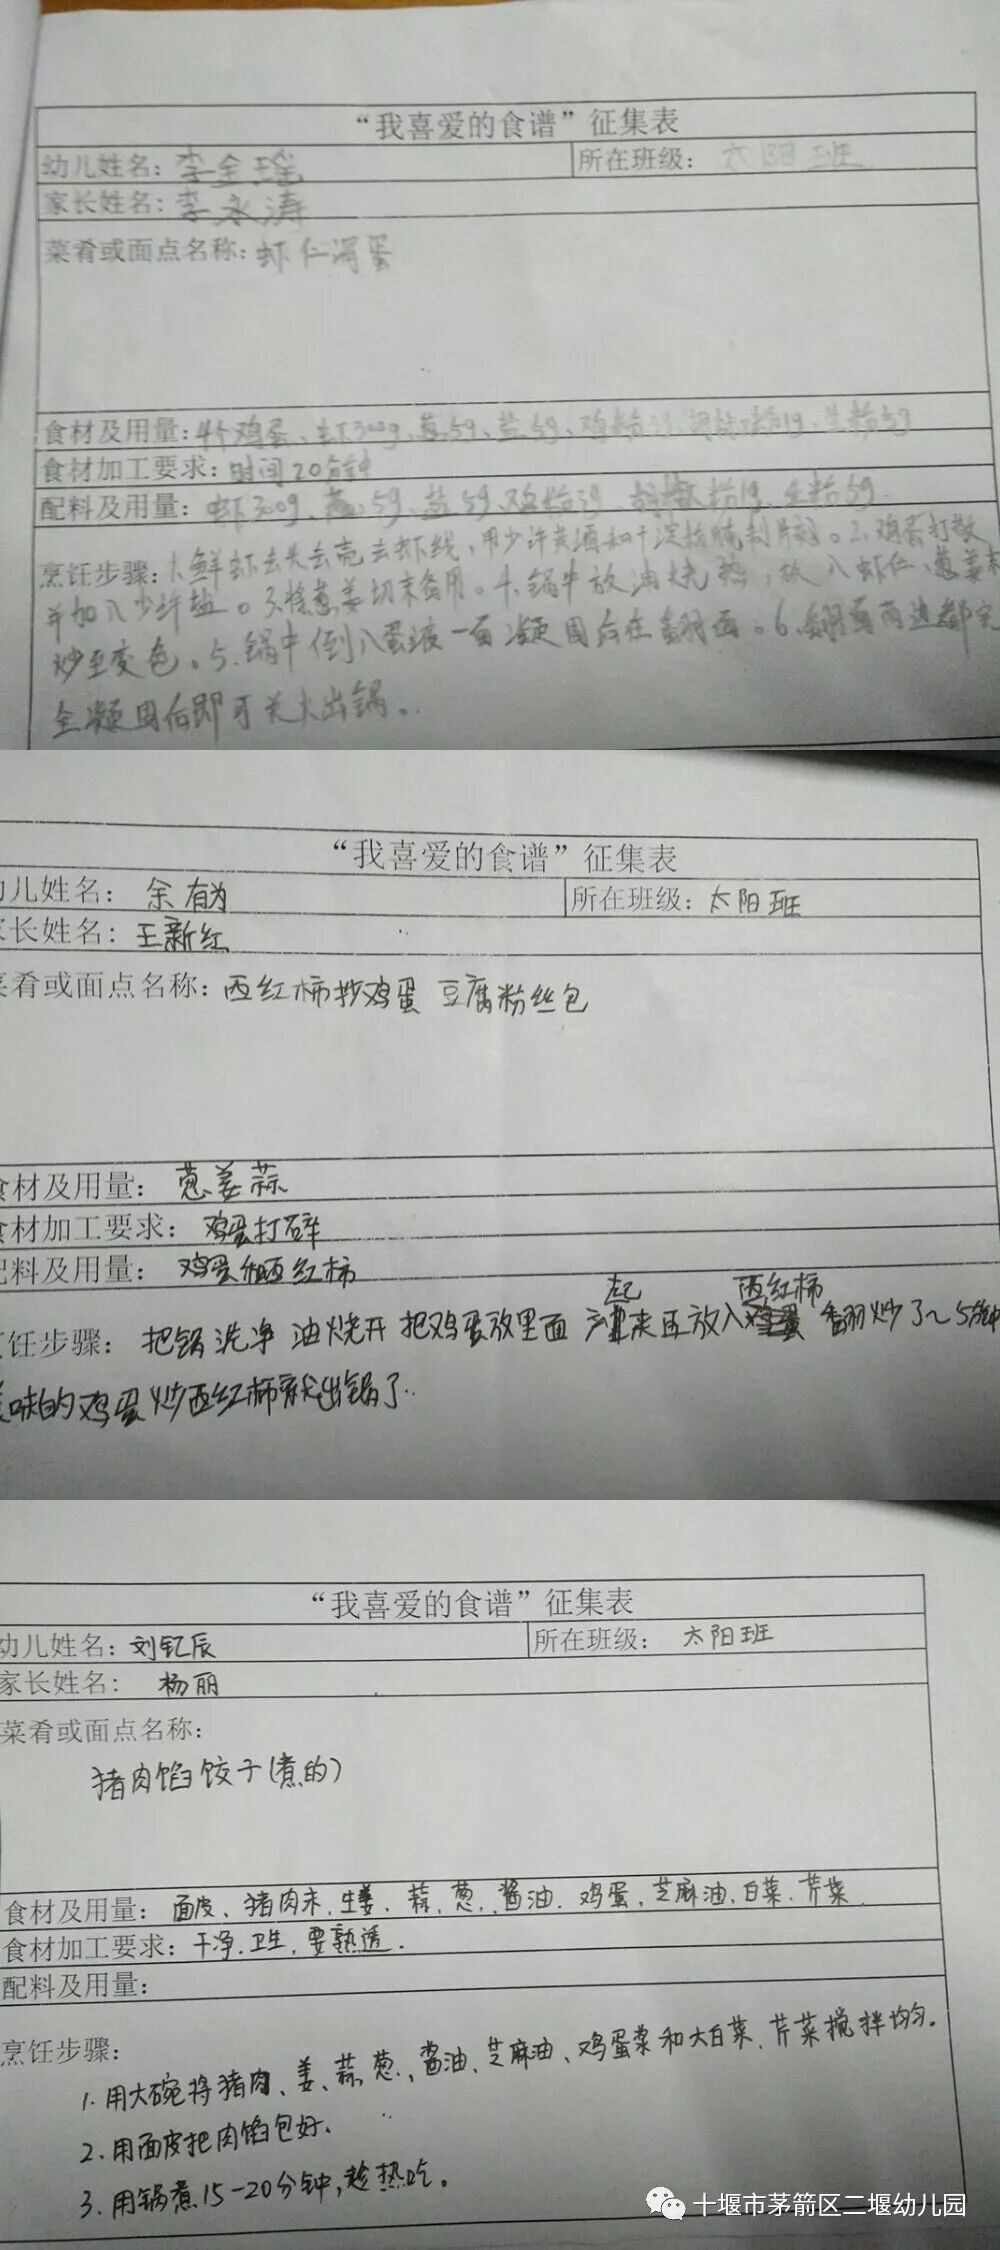 “我喜爱的食谱”征集表
幼儿姓名：李全瑶 所在班级：太阳班
家长姓名：李永涛
菜肴或面点名称：虾仁滑蛋
食材及用量：4个鸡蛋、生虾300g、葱5g、盐5g、鸡粉3g、胡椒粉1g、生粉5g
食材加工要求：时间20分钟
配料及用量：虾300g、葱5g、盐5g、鸡粉3g、胡椒粉1g、生粉5g
烹饪步骤：1、鲜虾去头去壳去虾线，用少许黄酒和干淀粉腌制片刻。2、鸡蛋打散
并加入少许盐。3、将葱姜切末备用。4、锅中放油烧热，放入虾仁、葱姜末
炒至变色。5、锅中倒入蛋液一面凝固后在翻面。6、翻面两边都完
全凝固后即可关火出锅。
“我喜爱的食谱”征集表
幼儿姓名：余有为 所在班级：太阳班
家长姓名：王新红
菜肴或面点名称：西红柿抄鸡蛋 豆腐粉丝包
食材及用量：葱姜蒜
食材加工要求：鸡蛋打碎
配料及用量：鸡蛋和西红柿
起 西红柿
烹饪步骤：把锅洗净 油烧开 把鸡蛋放里面 来再放入 翻炒了~5分钟
美味的鸡蛋炒西红柿就出锅了..
“我喜爱的食谱”征集表
幼儿姓名：刘钇辰 所在班级：太阳班
家长姓名：杨丽
菜肴或面点名称：
猪肉馅饺子(煮的)
食材及用量：面皮、猪肉末、生姜、蒜、葱、酱油、鸡蛋、芝麻油、白菜、芹菜
食材加工要求：干净、卫生，要熟透.
配料及用量：
烹饪步骤：
1.用大碗将猪肉、姜、蒜、葱、酱油、芝麻油、鸡蛋浆和大白菜、芹菜搅拌均匀。
2.用面皮把肉馅包好.
3.用锅煮15-20分钟，趁热吃。
十堰市茅箭区二堰幼儿园